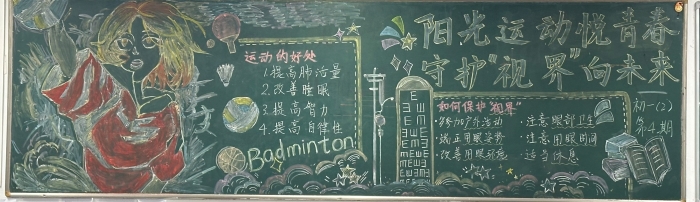 阳光运动悦青春
守护"视界"向未来
初一(2)
第4期
运动的好处
1.提高肺活量
2.改善睡眠
3.提高智力
4.提高自律性
Badminton
如何保护"视界"
·参加户外活动
·端正用眼姿势
·改善用眼环境
·注意眼部卫生
·注意用眼时间
·适当休息
E
E Ш
E M E
E M E
M E M E
E M E M